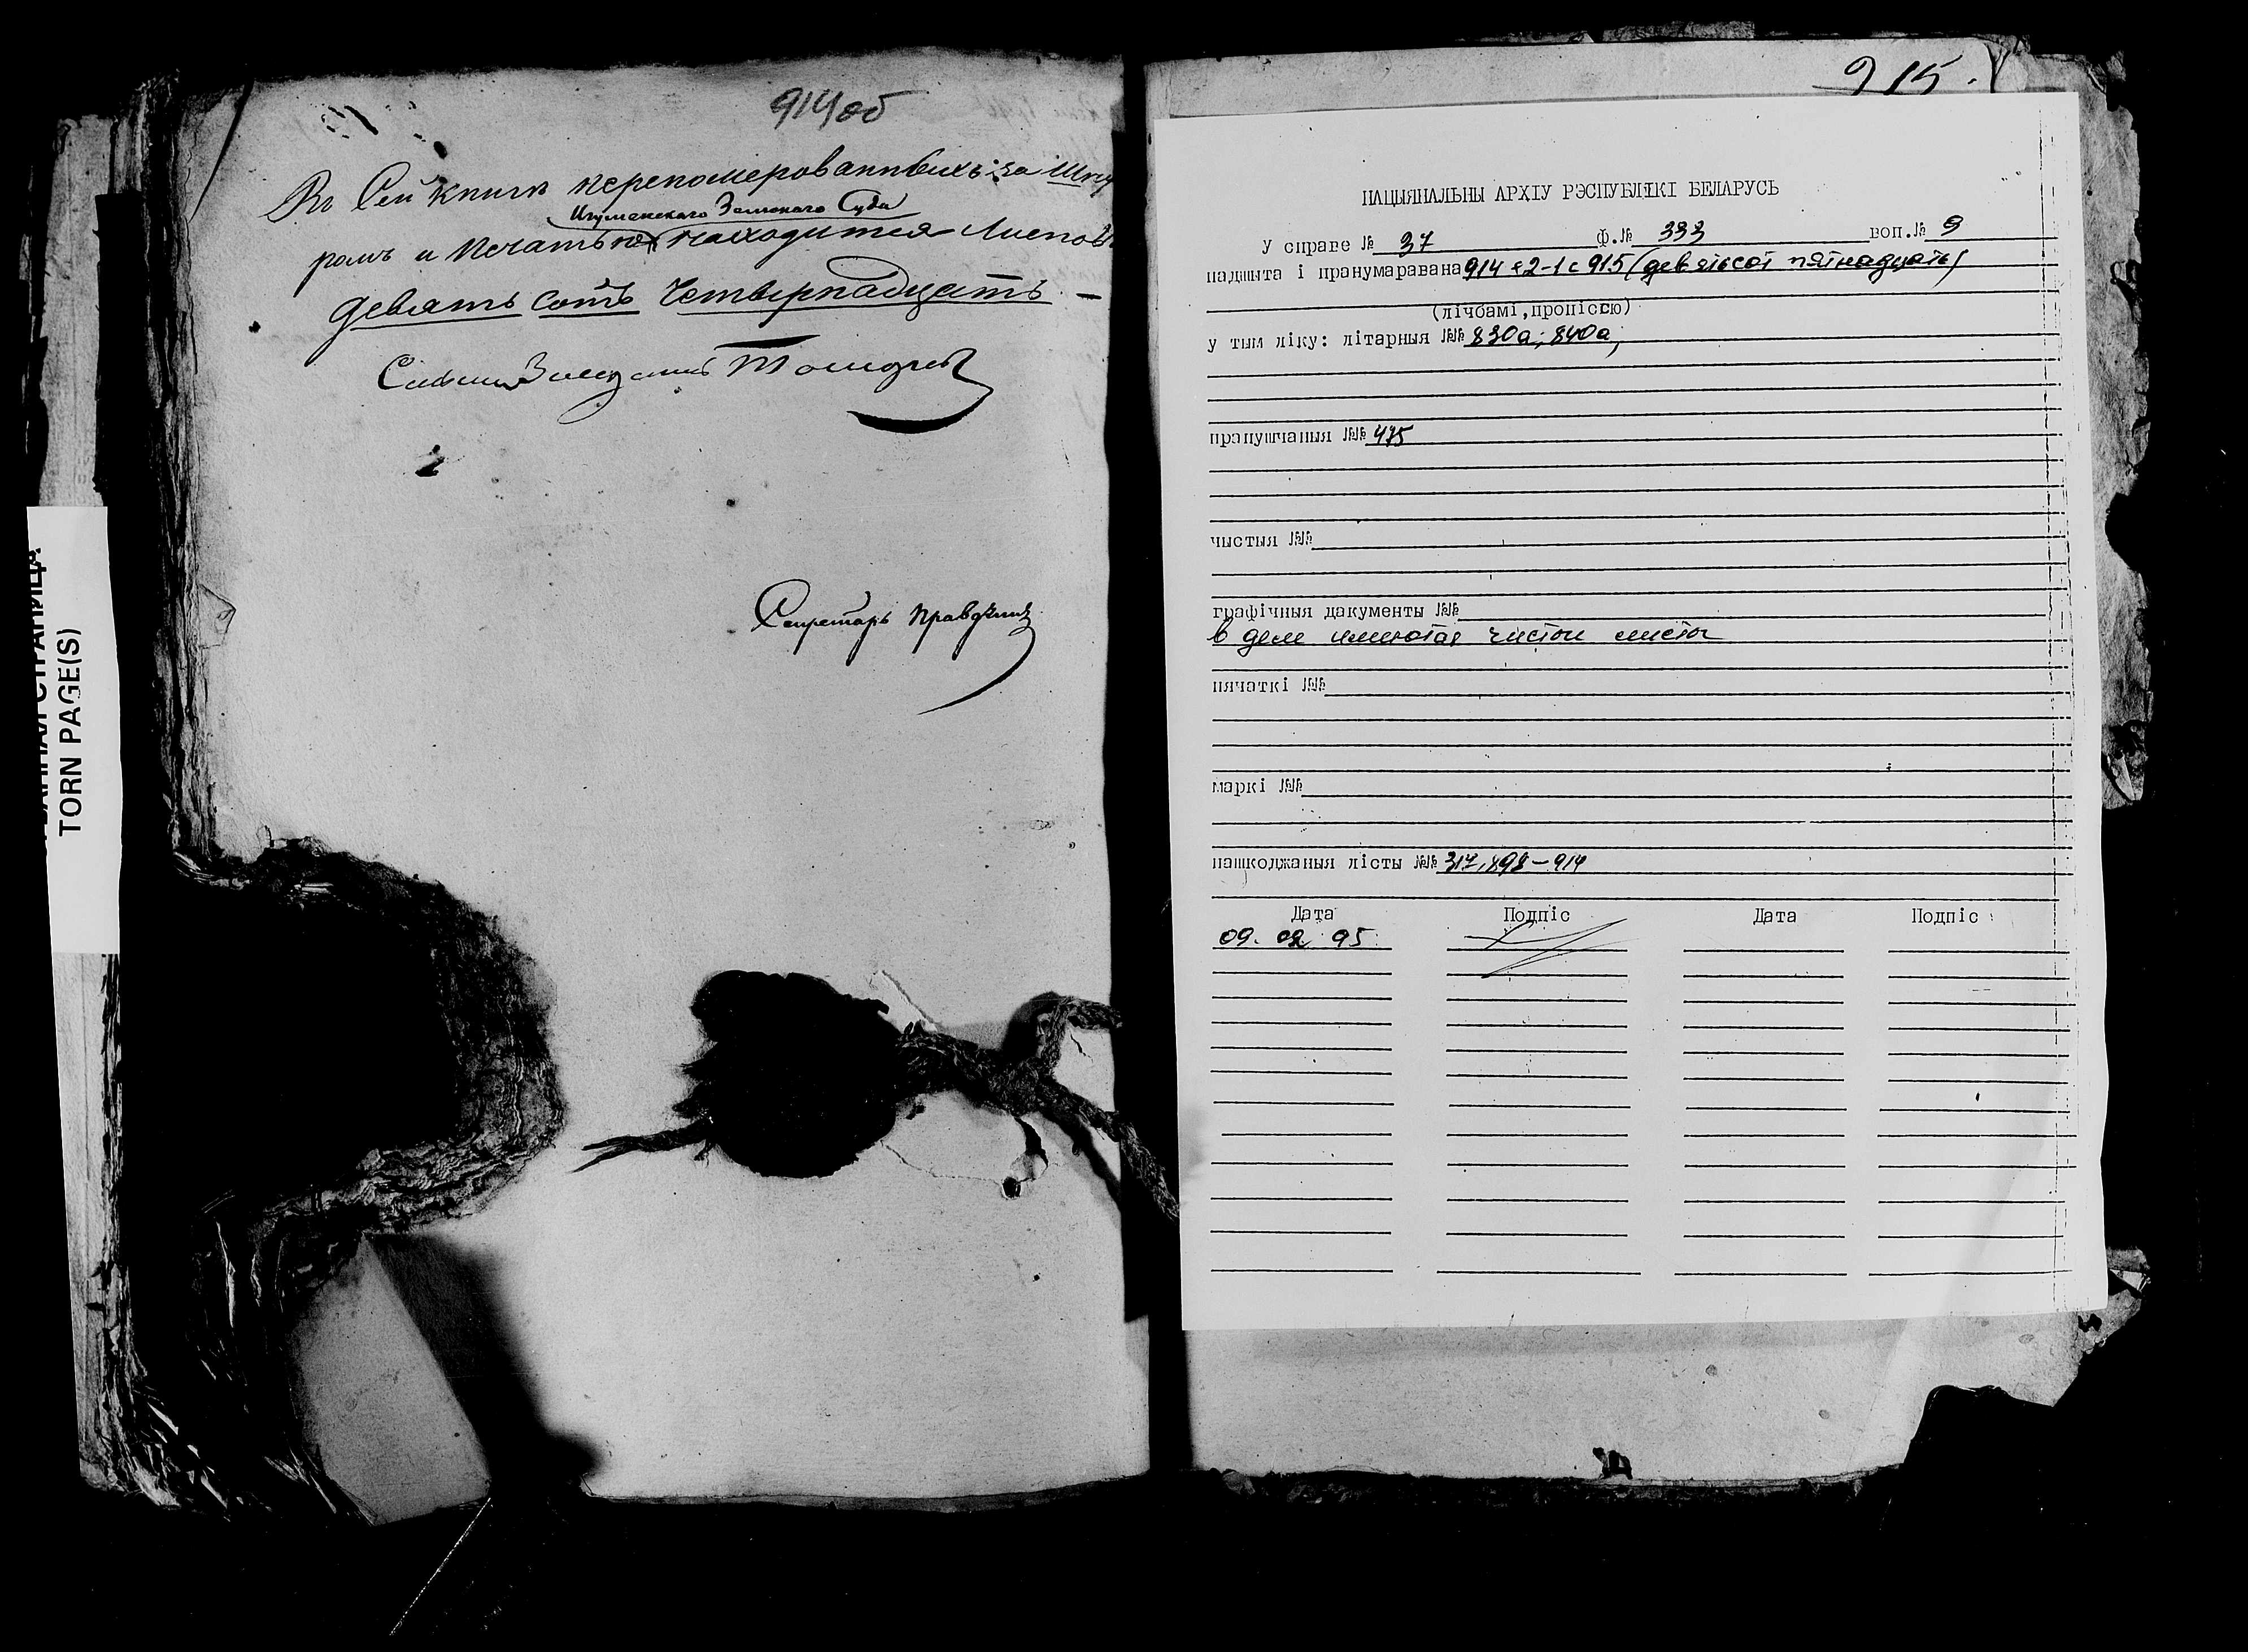 914об
Въ Сей книги перепомерованныхъ за Шну
Игуменскаго Земскаго Суда
ромъ и печатью находится Листовъ
девять сотъ Четырнадцать —
Секретарь
TORN PAGE(S)
915.
НАЦЫЯНАЛЬНЫ АРХІУ РЭСПУБЛІКІ БЕЛАРУСЬ
У справе № 37 Ф.№ 333 воп.№ 9
падшыта і пранумаравана 914+2-1=915 (девятьсот пятнадцать)
(лічбамі,пропіссю)
у тым ліку: літарныя №№ 830а; 840а;
прапушчаныя №№ 475
чыстыя №№
графічныя дакументы №№
в деле имеются чистые листы
пячаткі №№
маркі №№
пашкоджаныя лісты №№ 317, 898-914
Дата Подпіс Дата Подпіс
09. 02 95